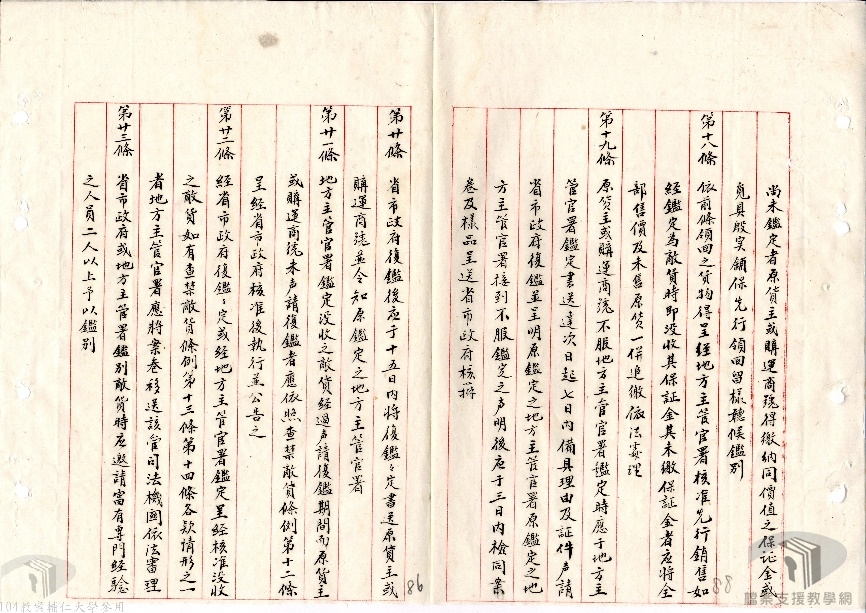 尚未鑑定者原貨主或購運商號得繳納同價值之保証金或
覓具殷实舖保先行領回留樣聽候鑑别
第十八條 依前條領回之貨物得呈經地方主管官署核准先行銷售如
經鑑定為敵貨時即没收其保証金其未繳保証金者应將全
部售價及未售原貨一併追繳依法處理
第十九條 原貨主或購運商號不服地方主管官署鑑定時應于地方主
管官署鑑定書送達次日起七日内備具理由及証件声請
省市政府復鑑並呈明原鑑定之地方主管官署原鑑定之地
方主管官署接到不服鑑定之声明後应于三日内檢同案
卷及樣品呈送省市政府核辦
88
第廿條 省市政府復鑑後应于十五日内將復鑑鑑定書送原貨主或
購運商號並令知原鑑定之地方主管官署
第廿一條 地方主管官署鑑定没收之敵貨經過声請復鑑期間而原貨主
或購運商號未声請復鑑者應依照查禁敵貨條例第十二條
呈經省市政府核准後執行並公告之
第廿二條 經省市政府復鑑鑑定或經地方主管官署鑑定呈經核准没收
之敵貨如有查禁敵貨條例第十三條第十四條各款情形之一
者地方主管官署應將案卷移送該管司法機關依法審理
第廿三條 省市政府或地方主管署鑑别敵貨時应邀請富有専門經驗
之人員二人以上予以鑑别
86
104教案輔仁大學參用
檔案支援教學網